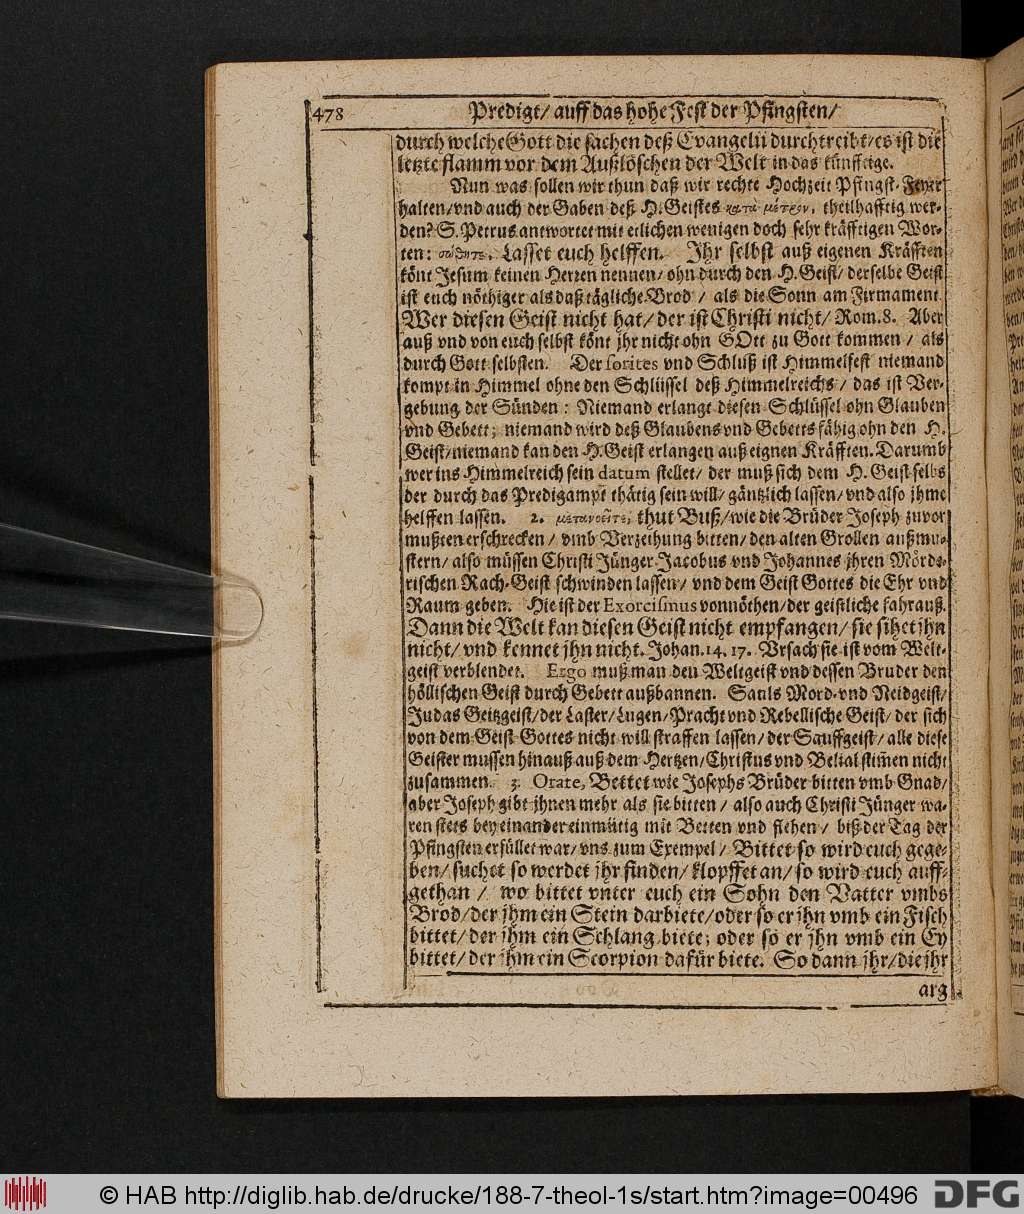 478 Predigt/ auff das hohe Fest der Pfingsten/
durch welche Gott die sachen deß Evangelii durchtreibt/ es ist die
letzte flamm vor dem Außlöschen der Welt in das künfftige.
Nun was sollen wir thun daß wir rechte Hochzeit Pfingst-Feyer
halten/ vnd auch der Gaben deß H. Geistes κατὰ μέτρον, theilhafftig wer-
den? S. Petrus antwortet mit etlichen wenigen doch sehr kräfftigen Wor-
ten: σώθητε, Lasset euch helffen. Ihr selbst auß eigenen Kräfften
könt Jesum keinen Herren nennen/ ohn durch den H. Geist/ derselbe Geist
ist euch nöthiger als daß tägliche Brod/ als die Sonn am Firmament.
Wer diesen Geist nicht hat/ der ist Christi nicht/ Rom. 8. Aber
auß vnd von euch selbst könt jhr nicht ohn GOtt zu Gott kommen/ als
durch Gott selbsten. Der sorites vnd Schluß ist Himmelfest niemand
kompt in Himmel ohne den Schlüssel deß Himmelreichs/ das ist Ver-
gebung der Sünden: Niemand erlangt diesen Schlüssel ohn Glauben
vnd Gebett; niemand wird deß Glaubens vnd Gebetts fähig ohn den H.
Geist/ niemand kan den H. Geist erlangen auß eignen Kräfften. Darumb
wer ins Himmelreich sein datum stellet/ der muß sich dem H. Geist selbs
der durch das Predigampt thätig sein will/ gäntzlich lassen/ vnd also jhme
helffen lassen. 2. μετανοεῖτε, thut Buß/ wie die Brüder Joseph zuvor
mußten erschrecken/ vmb Verzeihung bitten/ den alten Grollen außmu-
stern/ also müssen Christi Jünger Jacobus vnd Johannes jhren Mörde-
rischen Rach-Geist schwinden lassen/ vnd dem Geist Gottes die Ehr vnd
Raum geben. Hie ist der Exorcismus vonnöthen/ der geistliche fahr auß.
Dann die Welt kan diesen Geist nicht empfangen/ sie sihet jhn
nicht/ vnd kennet jhn nicht. Johan. 14. 17. Vrsach sie ist vom Welt-
geist verblendet. Ergo muß man den Weltgeist vnd dessen Bruder den
höllischen Geist durch Gebett außbannen. Sauls Mord- vnd Neidgeist/
Judas Geitzgeist/ der Laster/ Lugen/ Pracht vnd Rebellische Geist/ der sich
von dem Geist Gottes nicht will straffen lassen/ der Sauffgeist/ alle diese
Geister mussen hinauß auß dem Hertzen/ Christus vnd Belial stim̃en nicht
zusammen. 3. Orate, Bettet wie Josephs Brüder bitten vmb Gnad/
aber Joseph gibt jhnen mehr als sie bitten/ also auch Christi Jünger wa-
ren stets bey einander einmütig mit Betten vnd flehen/ biß der Tag der
Pfingsten erfüllet war/ vns zum Exempel/ Bittet so wird euch gege-
ben/ suchet so werdet jhr finden/ klopffet an/ so wird euch auff-
gethan/ wo bittet vnter euch ein Sohn den Vatter vmbs
Brod/ der jhm ein Stein darbiete/ oder so er jhn vmb ein Fisch
bittet/ der jhm ein Schlang biete; oder so er jhn vmb ein Ey
bittet/ der jhm ein Scorpion dafür biete. So dann jhr/ die jhr
arg
© HAB http://diglib.hab.de/drucke/188-7-theol-1s/start.htm?image=00496 DFG